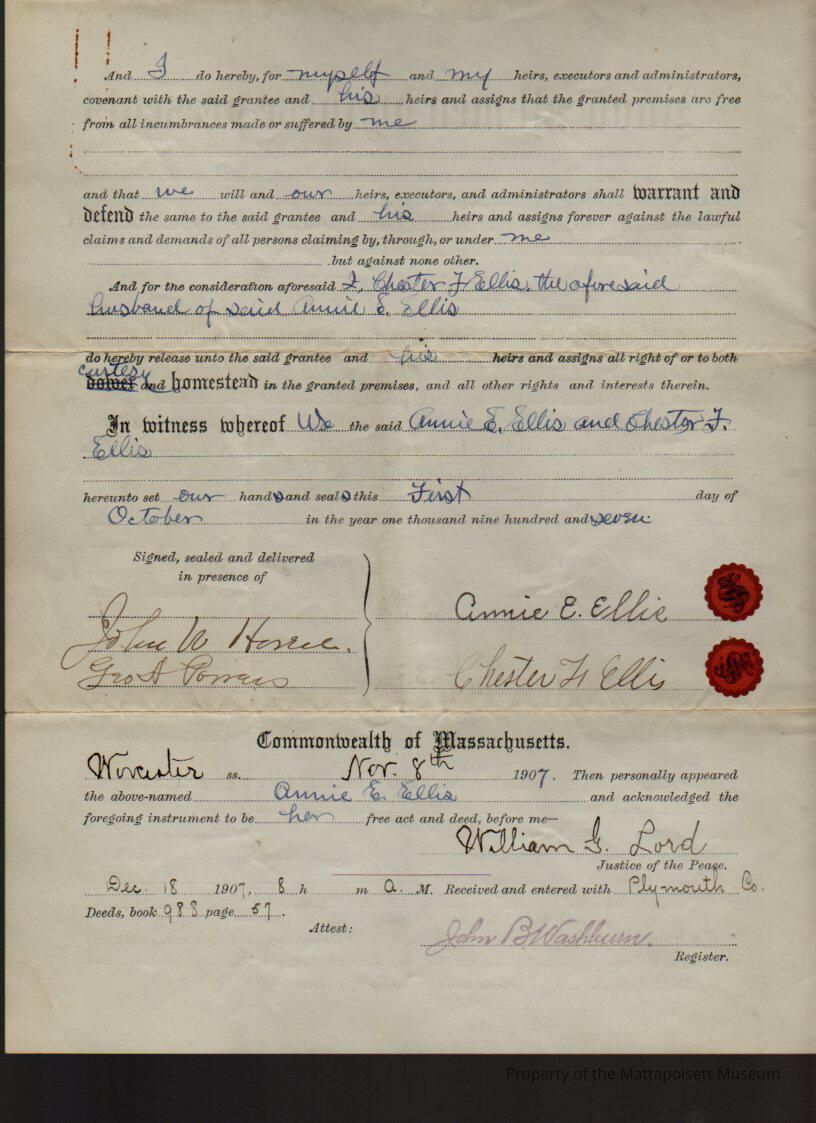 And I do hereby, for myself and my heirs, executors and administrators,
covenant with the said grantee and his heirs and assigns that the granted premises are free
from all incumbrances made or suffered by me
and that we will and our heirs, executors, and administrators shall warrant and
defend the same to the said grantee and his heirs and assigns forever against the lawful
claims and demands of all persons claiming by, through, or under me
but against none other.
And for the consideration aforesaid I, Chester F Ellis, the aforesaid
husband of said Annie E. Ellis
do hereby release unto the said grantee and his heirs and assigns all right of or to both
curtesy
dower and homestead in the granted premises, and all other rights and interests therein.
In witness whereof We the said Annie E. Ellis and Chester F.
Ellis
hereunto set our hands and seals this First day of
October in the year one thousand nine hundred and seven
Signed, sealed and delivered
in presence of
Annie E. Ellis
John W
Geo A
Chester F Ellis
Commonwealth of Massachusetts.
Worcester ss. Nov. 8th 1907. Then personally appeared
the above-named Annie E. Ellis and acknowledged the
foregoing instrument to be her free act and deed, before me—
William G. Lord
Justice of the Peace.
Dec. 18 1907, 8 h m a. M. Received and entered with Plymouth Co.
Deeds, book 988 page 57.
Attest:
John B Washburn
Register.
Property of the Mattapoisett Museum